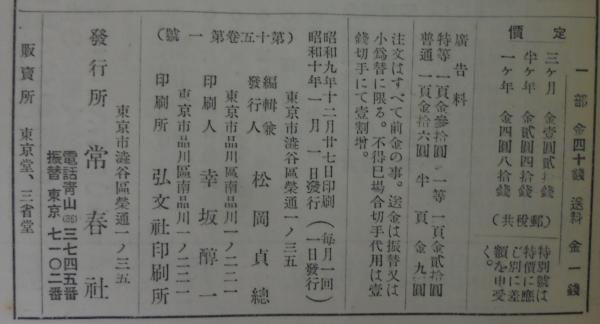 一部 金四十錢 送料 金一錢
定價
三ケ月 金壹圓貳十錢
半ケ年 金貳圓四拾錢
一ケ年 金四圓八拾錢
(郵税共)
特別號は
特價に應
じ別に差
額を申受
く。
廣告料
特等 一頁金參拾圓 一等 一頁金貳拾圓
普通 一頁金拾六圓 半頁金九圓
注文はすべて前金の事。送金は振替又は
小爲替に限る。不得已場合切手代用は壹
錢切手にて壹割增。
(第十五卷第一號)
昭和九年十二月廿七日印刷(每月一回
昭和十年一月一日發行(一日發行)
東京市澁谷區榮通一ノ三五
編輯兼
發行人 松岡貞總
東京市品川區南品川一ノ二二一
印刷人 幸坂醇一
東京市品川區南品川一ノ二二一
印刷所 弘文社印刷所
東京市澁谷區榮通一ノ三五
發行所 常春社
電話靑山(36)三七四五番
振替東京七一〇二番
販賣所 東京堂、三省堂